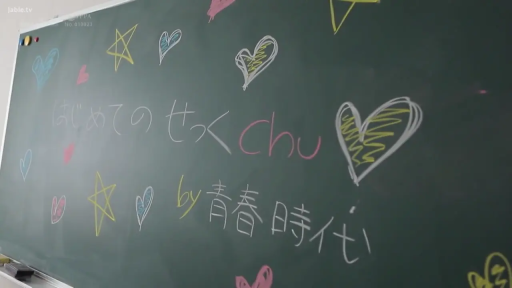 はじめてのせっくchu
by 青春時代